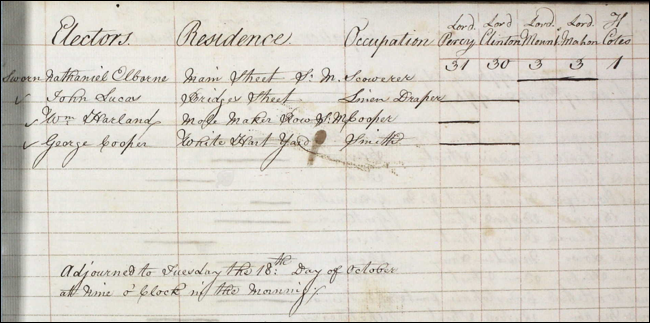 Electors. Residence. Occupation Lord Percy Lord Clinton Lord Mount. Lord Mahon W Cotes
31 30 3 3 1
Sworn Nathaniel Elborne Main Street St. M. Scowerer
John Lucas Bridges Street Linen Draper
Wm Harland Mole Maker Row St. M. Cooper
George Cooper White Hart Yard Smith
Adjourned to Tuesday the 18th. Day of October
at Nine o'Clock in the Morning.